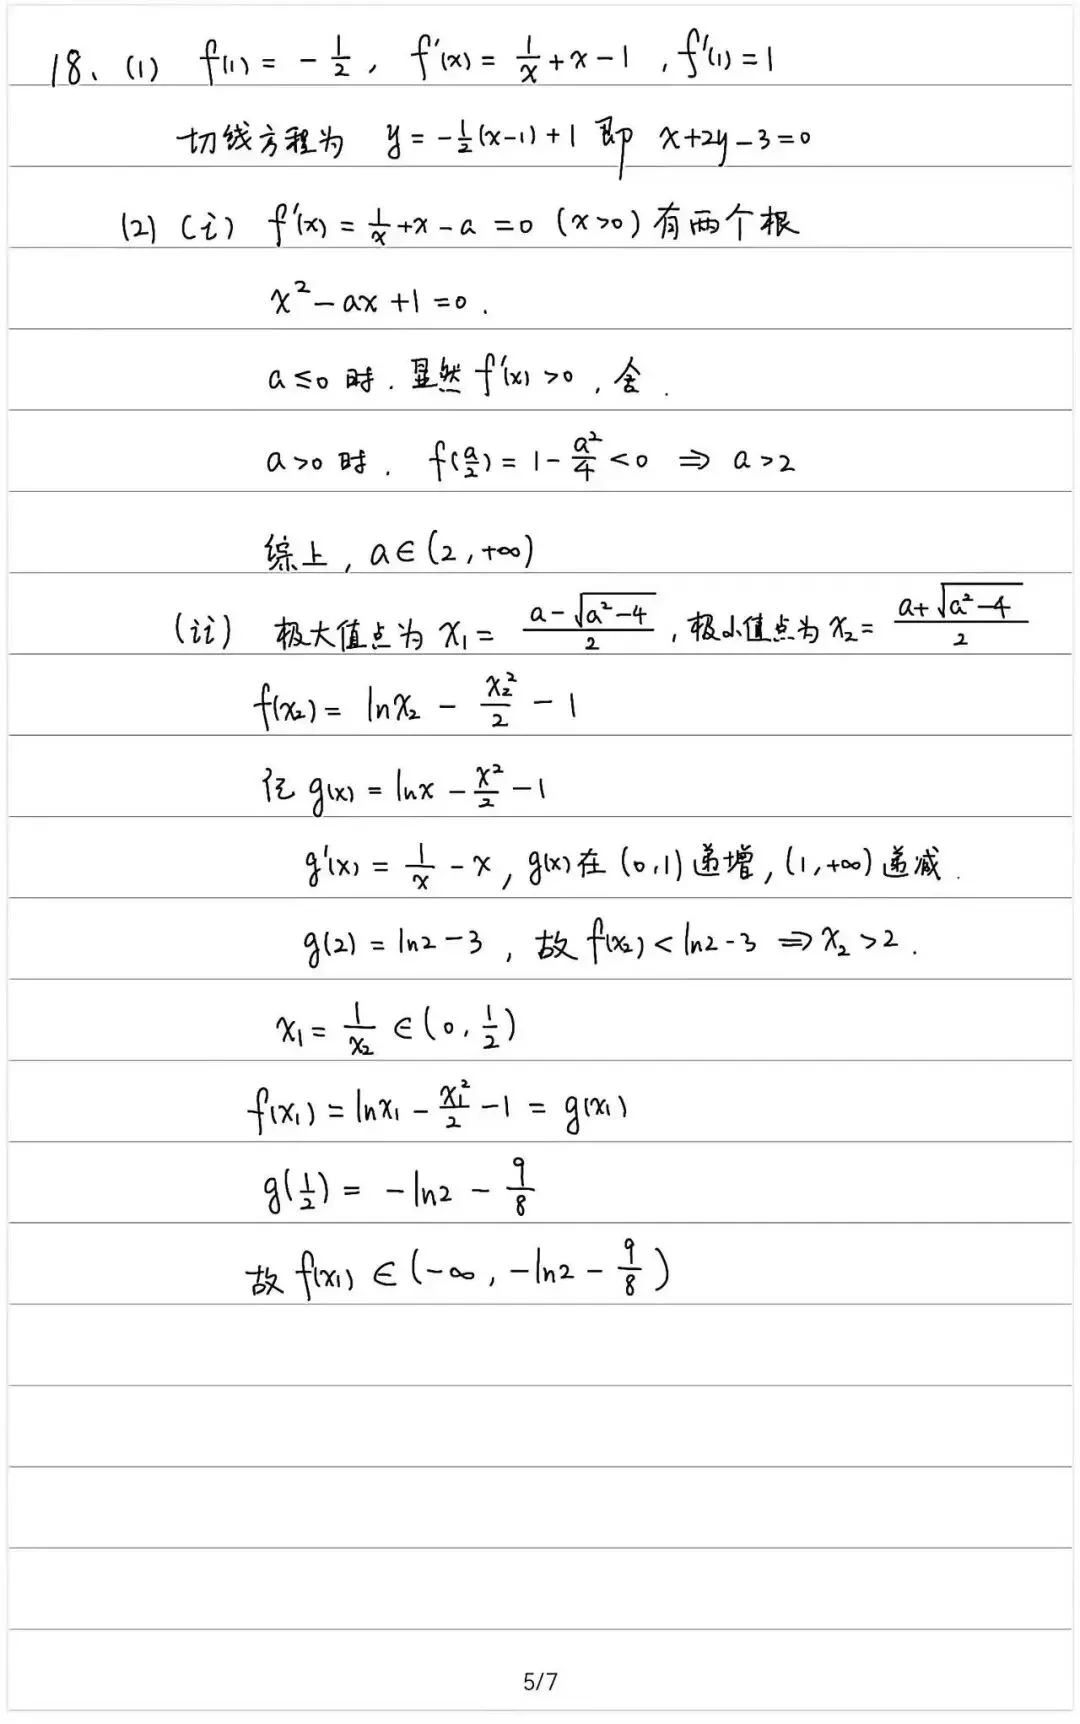 18、(1) f(1) = -1/2, f'(x) = 1/x + x - 1, f'(1) = 1
切线方程为 y = -1/2(x-1)+1 即 x+2y-3=0
(2) (i) f'(x) = 1/x + x - a = 0 (x>0) 有两个根
x² - ax + 1 = 0.
a ≤ 0 时. 显然 f'(x) > 0, 舍.
a > 0 时. f(a/2) = 1 - a²/4 < 0 ⇒ a > 2
综上, a ∈ (2, +∞)
(ii) 极大值点为 x₁ = (a-√(a²-4))/2, 极小值点为 x₂ = (a+√(a²-4))/2
f(x₂) = lnx₂ - x₂²/2 - 1
记 g(x) = lnx - x²/2 - 1
g'(x) = 1/x - x, g(x) 在 (0,1) 递增, (1,+∞) 递减.
g(2) = ln2 - 3, 故 f(x₂) < ln2 - 3 ⇒ x₂ > 2.
x₁ = 1/x₂ ∈ (0, 1/2)
f(x₁) = lnx₁ - x₁²/2 - 1 = g(x₁)
g(1/2) = -ln2 - 9/8
故 f(x₁) ∈ (-∞, -ln2 - 9/8)
5/7